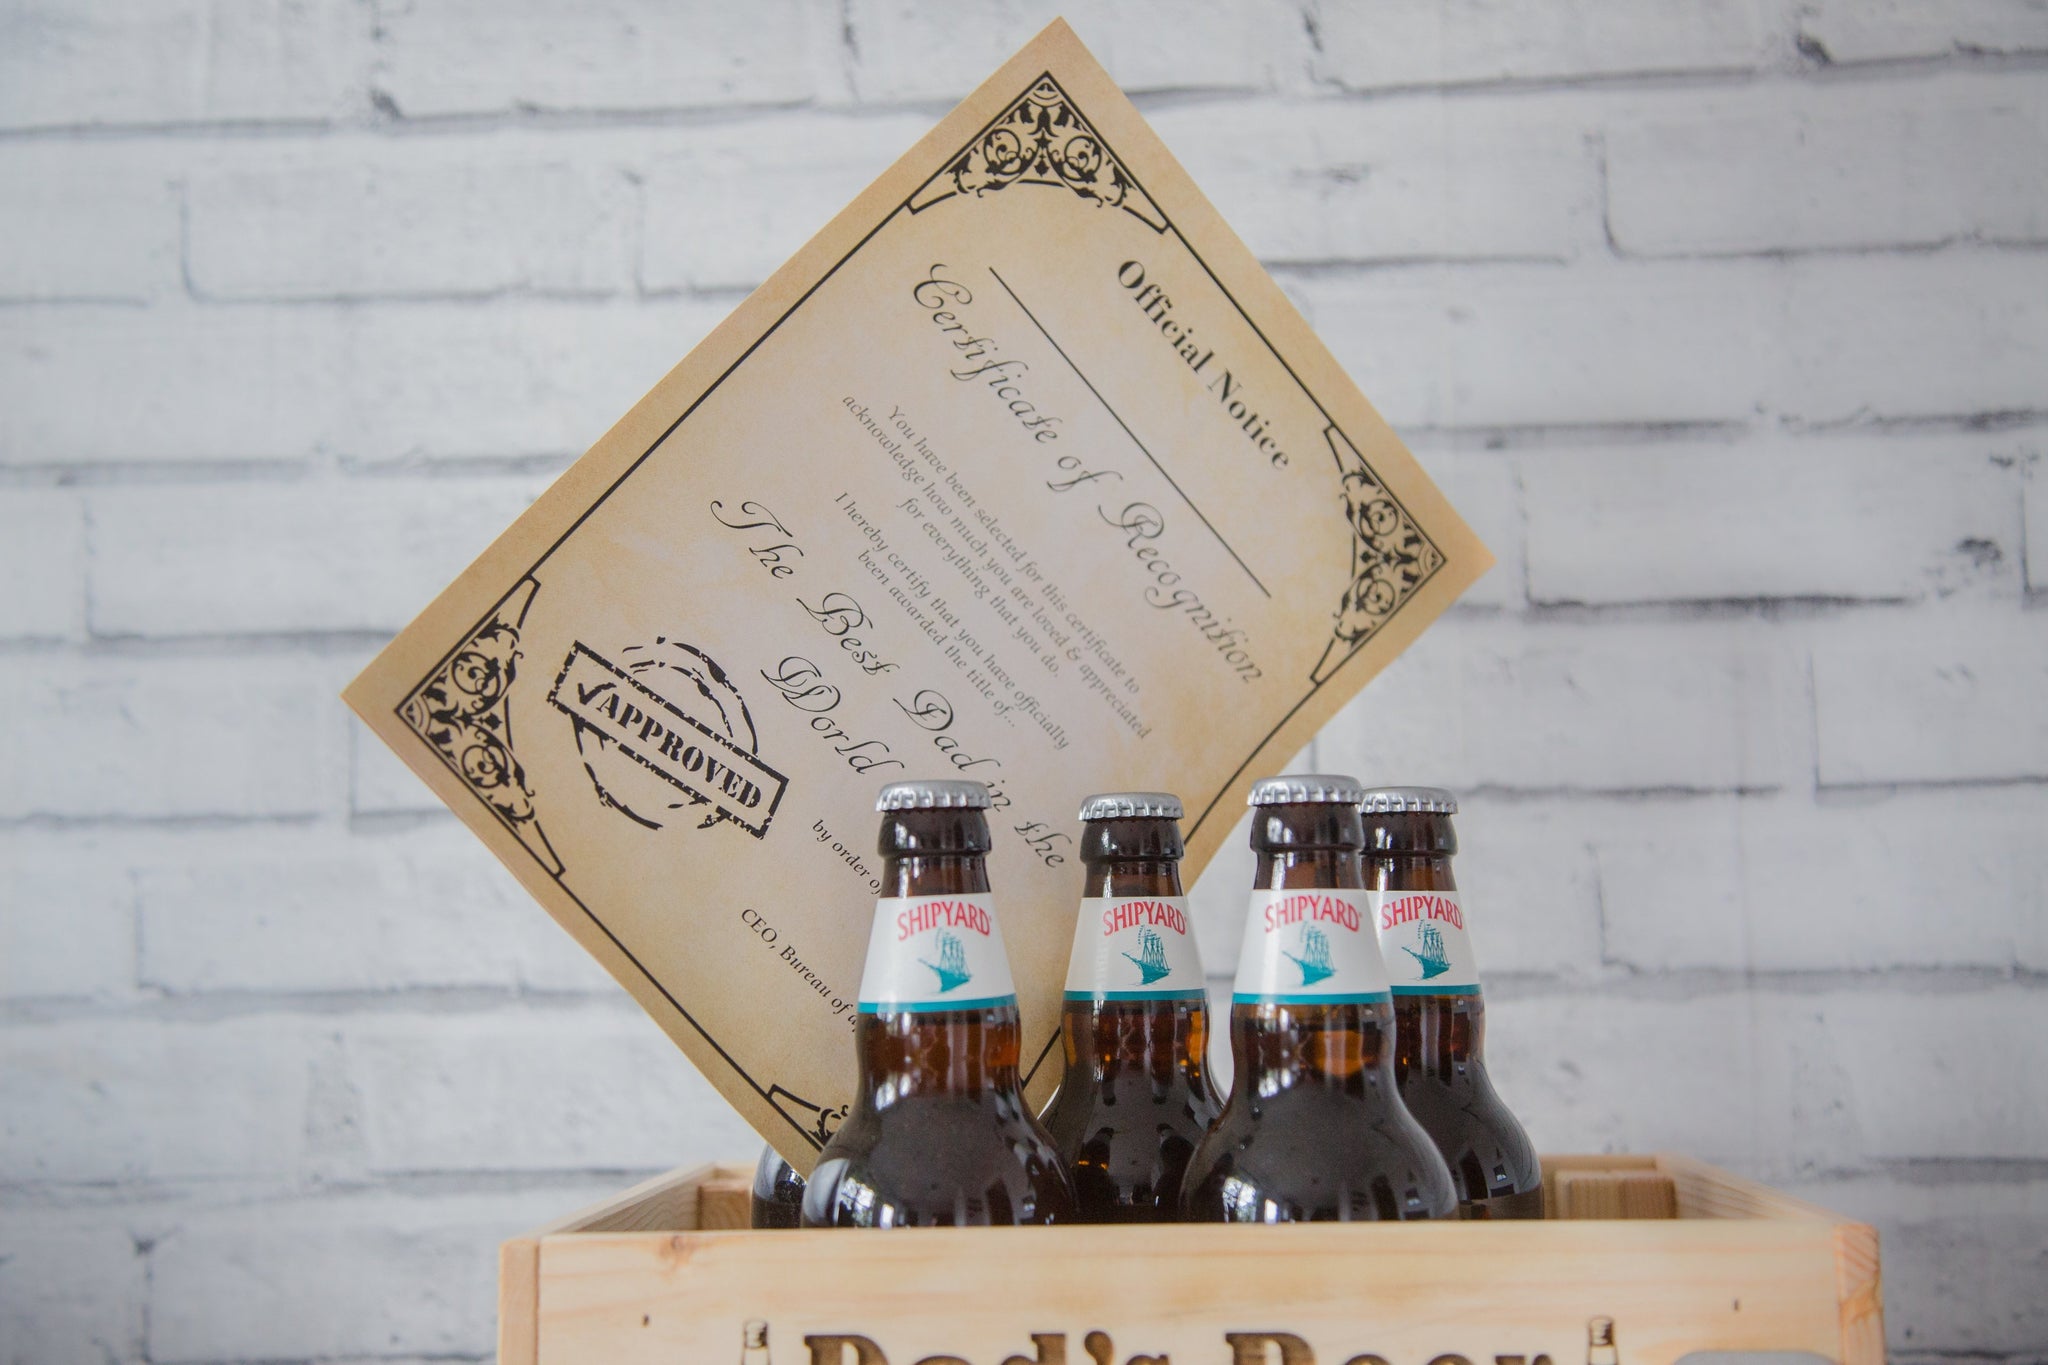 Official Notice
Certificate of Recognition
You have been selected for this certificate to
acknowledge how much you are loved & appreciated
for everything that you do.
I hereby certify that you have officially
been awarded the title of...
The Best Dad in the
World
✓APPROVED
by order of
CEO, Bureau of
SHIPYARD
SHIPYARD
SHIPYARD
SHIPYARD
Dad's Beer